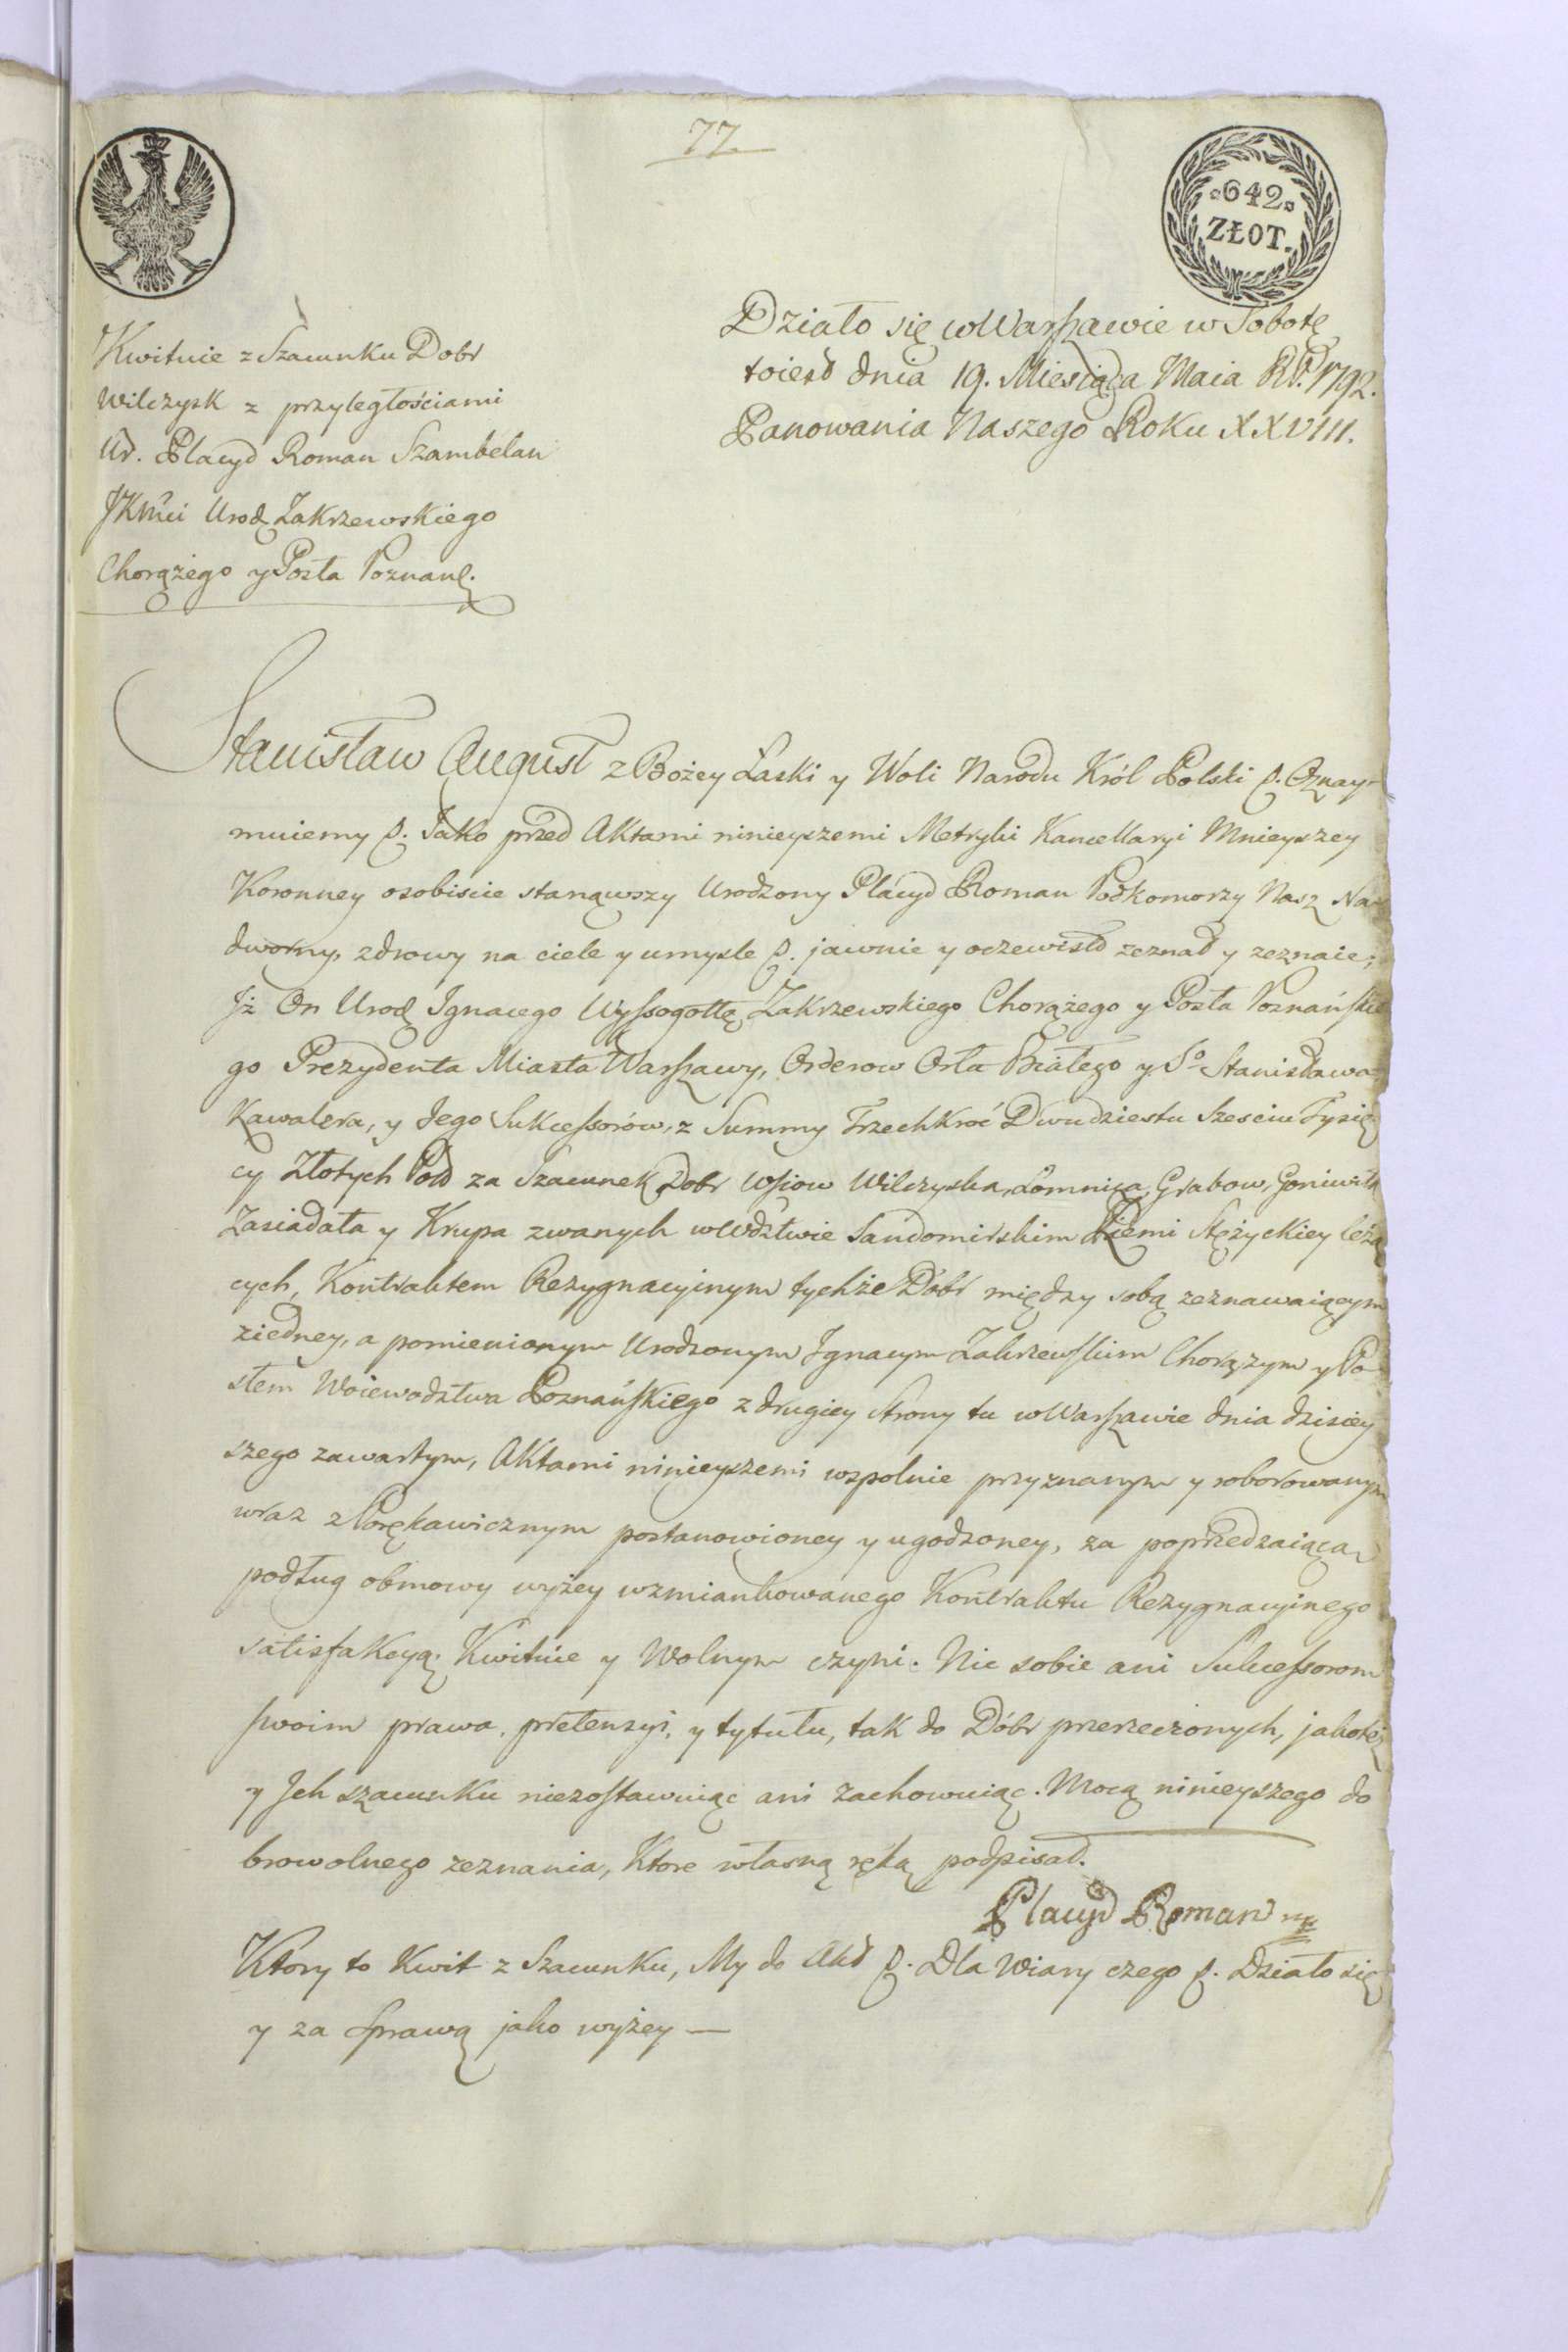 77
642
ZŁOT.
Działo się w Warszawie w Sobotę
toiest dnia 19. Miesiąca Maia RP. 1792.
Panowania Naszego Roku XXVIII.
Kwituie z Szacunku Dobr
Wilczysk z przyległościami
Ur. Placyd Roman Szambelan
JKMci Urod. Zakrzewskiego
Chorążego y Posła Poznań.
Stanisław August z Bożey Łaski y Woli Narodu Król Polski p. Oznay-
muiemy p. Jako przed Aktami ninieyszemi Metryki Kancellaryi Mnieyszey
Koronney osobiscie stanąwszy Urodzony Placyd Roman Podkomorzy Nasz Na-
dworny, zdrowy na ciele y umysle p. jawnie y oczewisto zeznał y zeznaie;
Jż On Urod. Ignacego Wyssogottę Zakrzewskiego Chorążego y Posła Poznańskie
go Prezydenta Miasta Warszawy, Orderow Orła Białego y So Stanisława
Kawalera, y Jego Sukcessorów, z Summy Trzechkroć Dwudziestu Szesciu Tysię
cy Złotych Pol za Szacunek Dobr Wsiow Wilczyska, Łomnica, Grabow, Goniwilk
Zasiadała y Krupa zwanych w Wdztwie Sandomirskim Ziemi Stężyckiey leżą
cych, Kontraktem Rezygnacyinym tychże Dóbr między sobą zeznawaiącym
ziedney, a pomienionym Urodzonym Jgnacym Zakrzewskim Chorążym y Po-
słem Woiewodztwa Poznańskiego z drugiey Strony tu w Warszawie dnia dzisiey
szego zawartym, Aktami ninieyszemi wspolnie przyznanym y roborowanym
wraz z Porękawicznym postanowioney y ugodzoney, za poprzedzaiącą
podług obmowy wyżey wzmiankowanego Kontraktu Rezygnacyinego
satisfakcyą; Kwituie y Wolnym czyni. Nic sobie ani Sukcessorom
swoim prawa, pretensyi, y tytułu, tak do Dóbr przerzeczonych, jakoteż
y Jch szacunku niezostawuiąc ani zachowuiąc. Mocą ninieyszego do
browolnego zeznania, Ktore własną ręką podpisał.
Placyd Roman
Ktory to Kwit z Szacunku, My do Akt p. Dla Wiary czego p. Działo się
y za Sprawą jako wyżey —